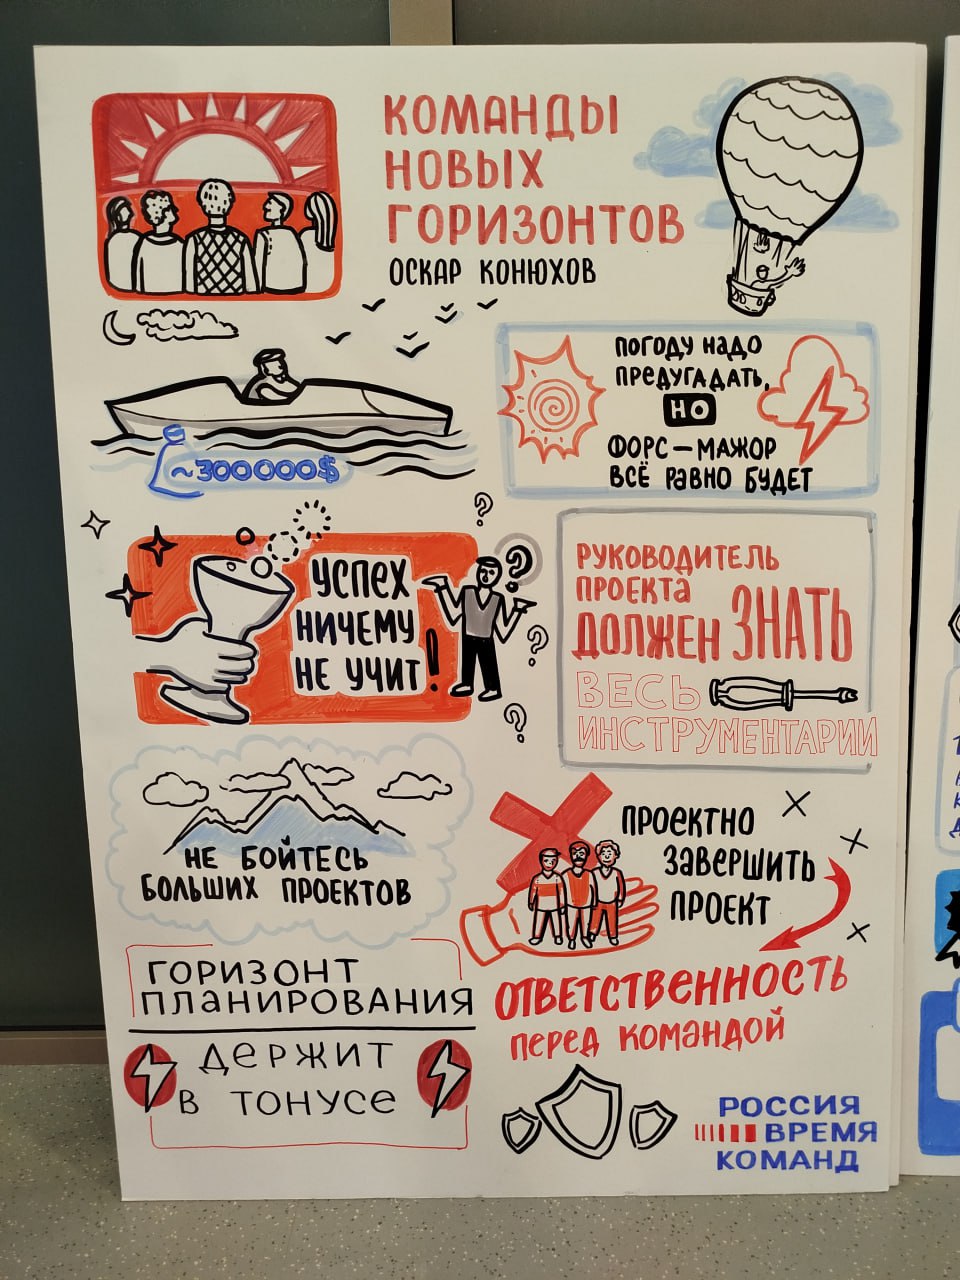 КОМАНДЫ
НОВЫХ
ГОРИЗОНТОВ
ОСКАР КОНЮХОВ
~300000$
ПОГОДУ НАДО
ПРЕДУГАДАТЬ,
НО
ФОРС-МАЖОР
ВСЁ РАВНО БУДЕТ
УСПЕХ
НИЧЕМУ
НЕ УЧИТ!
РУКОВОДИТЕЛЬ
ПРОЕКТА
ДОЛЖЕН ЗНАТЬ
ВЕСЬ
ИНСТРУМЕНТАРИЙ
НЕ БОЙТЕСЬ
БОЛЬШИХ ПРОЕКТОВ
ПРОЕКТНО
ЗАВЕРШИТЬ
ПРОЕКТ
ОТВЕТСТВЕННОСТЬ
ПЕРЕД КОМАНДОЙ
ГОРИЗОНТ
ПЛАНИРОВАНИЯ
ДЕРЖИТ
В ТОНУСЕ
РОССИЯ
ВРЕМЯ
КОМАНД